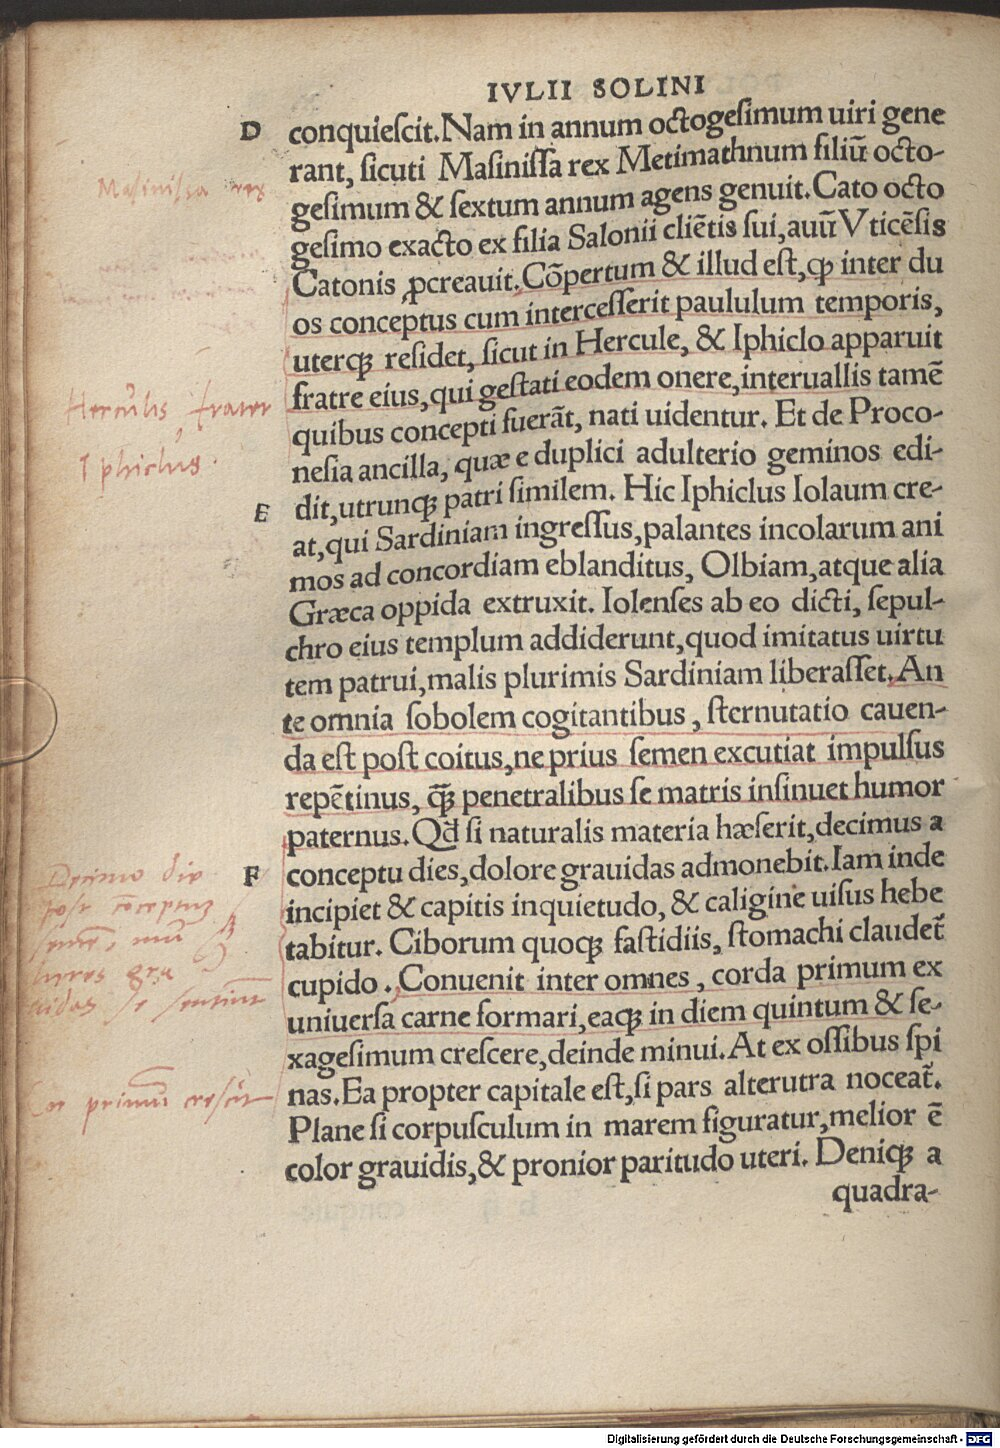 IVLII SOLINI
D
conquiescit. Nam in annum octogesimum uiri gene
rant, sicuti Masinissa rex Metimathnum filiū octo-
Masinissa rex
gesimum & sextum annum agens genuit. Cato octo
gesimo exacto ex filia Salonii cliētis sui, auū Vticēsis
Catonis ꝓcreauit. Cōpertum & illud est, ꝙ inter du
os conceptus cum intercesserit paululum temporis,
uterqꝫ residet, sicut in Hercule, & Iphiclo apparuit
fratre eius, qui gestati eodem onere, interuallis tamē
Herculis frater
quibus concepti fuerāt, nati uidentur. Et de Proco-
Iphiclus.
nesia ancilla, quæ e duplici adulterio geminos edi-
E
dit, utrunqꝫ patri similem. Hic Iphiclus Iolaum cre-
at, qui Sardiniam ingressus, palantes incolarum ani
mos ad concordiam eblanditus, Olbiam, atque alia
Græca oppida extruxit. Iolenses ab eo dicti, sepul-
chro eius templum addiderunt, quod imitatus uirtu
tem patrui, malis plurimis Sardiniam liberasset. An
te omnia sobolem cogitantibus, sternutatio cauen-
da est post coitus, ne prius semen excutiat impulsus
repētinus, ꝙ̄ꝫ penetralibus se matris insinuet humor
paternus. Qđ si naturalis materia hæserit, decimus a
F
conceptu dies, dolore grauidas admonebit. Iam inde
Decimo die
post cōceptuꝫ
incipiet & capitis inquietudo, & caligine uisus hebe
tabitur. Ciborum quoqꝫ fastidiis, stomachi claudet̃
semē, mu
lieres gra
cupido. Conuenit inter omnes, corda primum ex
uidas se sentiūt
uniuersa carne formari, eaqꝫ in diem quintum & se-
xagesimum crescere, deinde minui. At ex ossibus spi
Cor primū crescit
nas. Ea propter capitale est, si pars alterutra noceat̃.
Plane si corpusculum in marem figuratur, melior ē
color grauidis, & pronior paritudo uteri. Deniqꝫ a
quadra-
Digitalisierung gefördert durch die Deutsche Forschungsgemeinschaft - DFG